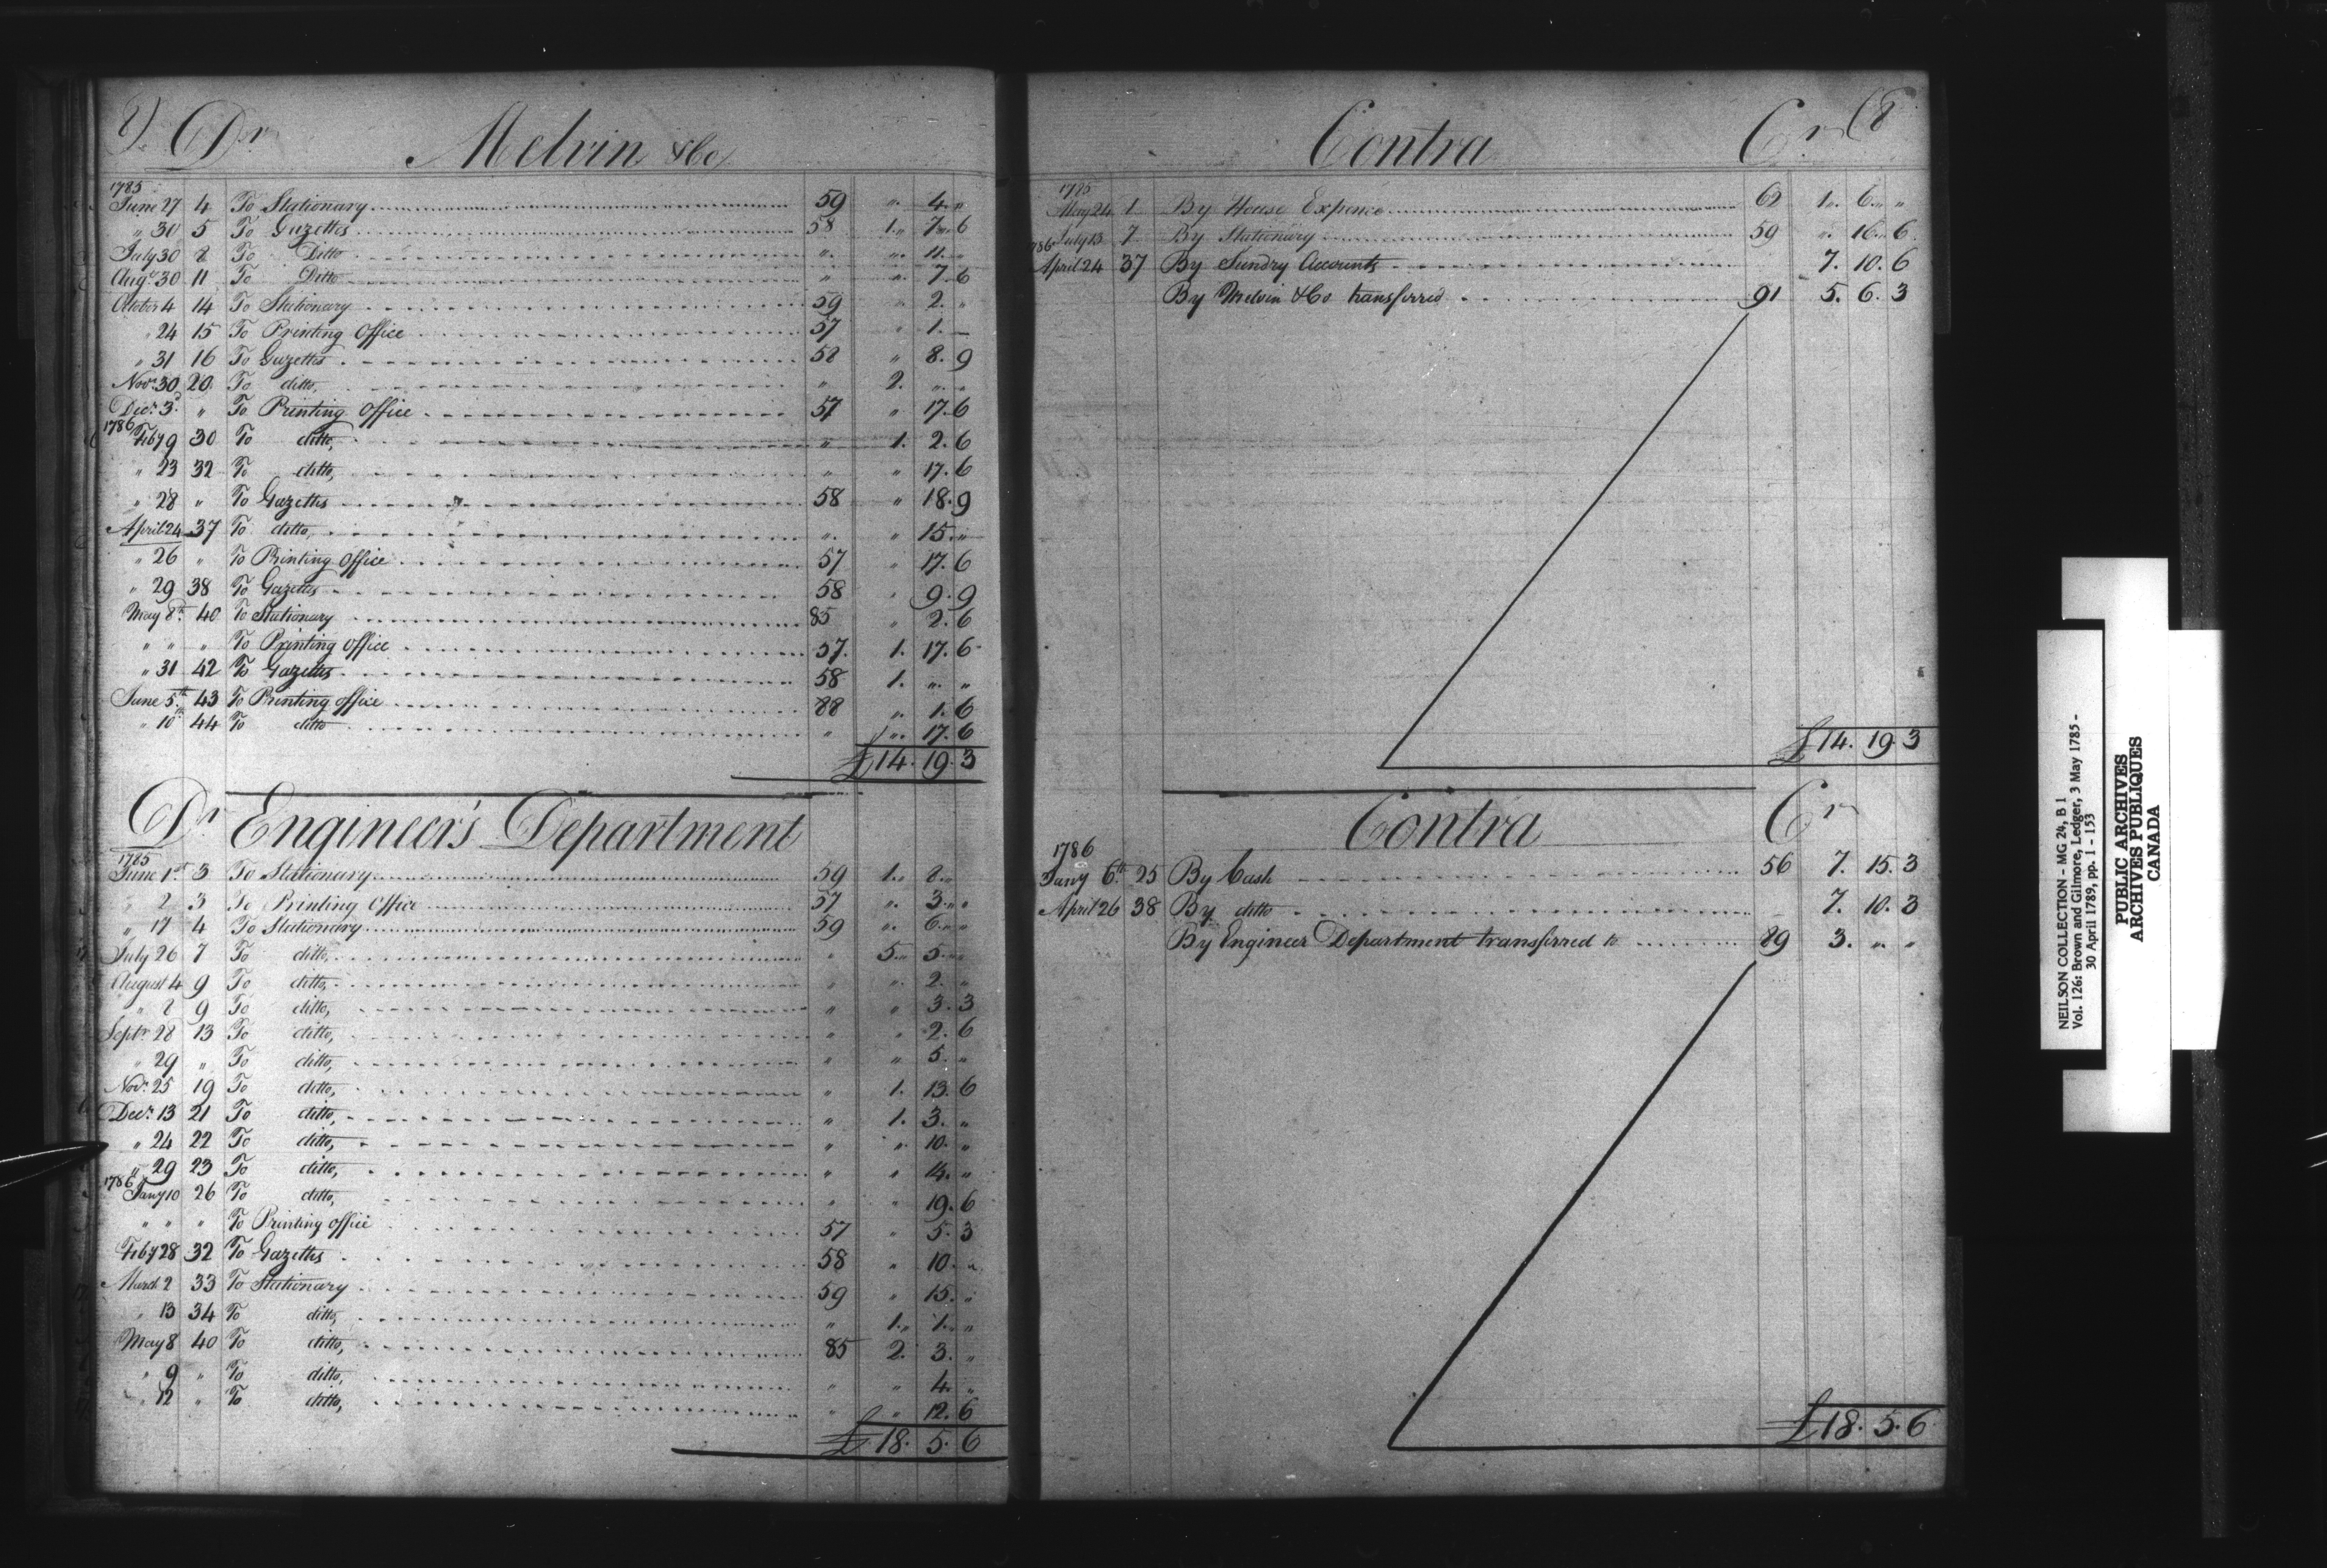 8) Dr Melvin &Co
1785
June 27 4 To Stationary 59 " 4 "
" 30 5 To Gazettes 58 1 " 7 " 6
July 30 8 To Ditto " " 11 "
Augt 30 11 To Ditto " " 7 6
October 4 14 To Stationary 59 " 2 "
" 24 15 To Printing Office 57 " 1 —
" 31 16 To Gazettes 58 " 8. 9
Novr 30 20 To ditto, " 2. " "
Decr 3d " To Printing Office 57 " 17. 6
1786
Feby 9 30 To ditto, " 1. 2. 6
" 23 32 To ditto, " " 17. 6
" 28 " To Gazettes 58 " 18. 9
April 24 37 To ditto, " " 15. "
" 26 " To Printing Office 57 " 17. 6
" 29 38 To Gazettes 58 " 9. 9
May 8th 40 To Stationary 85 " 2. 6
" " " To Printing Office 57. 1. 17. 6
" 31 42 To Gazettes 58 1. " "
June 5th 43 To Printing office 88 " 1. 6
" 10th 44 To ditto " " 17. 6
£14. 19. 3
Dr Engineer's Department
1785
June 1st 3 To Stationary 59 1 " 8 "
" 2 3 To Printing Office 57 " 3 " "
" 17 4 To Stationary 59 " 6 " "
July 26 7 To ditto, " 5 " 5 "
August 4 9 To ditto, " " 2. "
" 8 9 To ditto, " " 3. 3
Septr 28 13 To ditto, " " 2. 6
" 29 " To ditto, " " 5. "
Novr 25 19 To ditto, " 1. 13. 6
Decr 13 21 To ditto, " 1. 3. "
" 24 22 To ditto, " " 10. "
" 29 23 To ditto, " " 14. "
1786
Jany 10 26 To ditto, " " 19. 6
" " " To Printing office 57 " 5. 3
Feby 28 32 To Gazettes 58 " 10. "
March 2 33 To Stationary 59 " 15. "
" 13 34 To ditto, " 1. 1. "
May 8 40 To ditto, 85 2. 3. "
" 9 " To ditto, " " 4. "
" 12 " To ditto, " " 12. 6
£ 18. 5. 6
Contra Cr (8
1785
May 24 1 By House Expence 62 1 " 6 " "
July 13 7 By Stationary 59 " 16 " 6
1786
April 24 37 By Sundry Accounts 7. 10. 6
By Melvin &Co transferred 91 5. 6. 3
£14. 19. 3
Contra Cr
1786
Jany 6th 25 By Cash 56 7. 15. 3
April 26 38 By ditto 7. 10. 3
By Engineer Department transferred to 89 3. " "
£18. 5. 6
NEILSON COLLECTION - MG 24, B 1
Vol. 126: Brown and Gilmore, Ledger, 3 May 1785 -
30 April 1789, pp. 1 - 153
PUBLIC ARCHIVES
ARCHIVES PUBLIQUES
CANADA